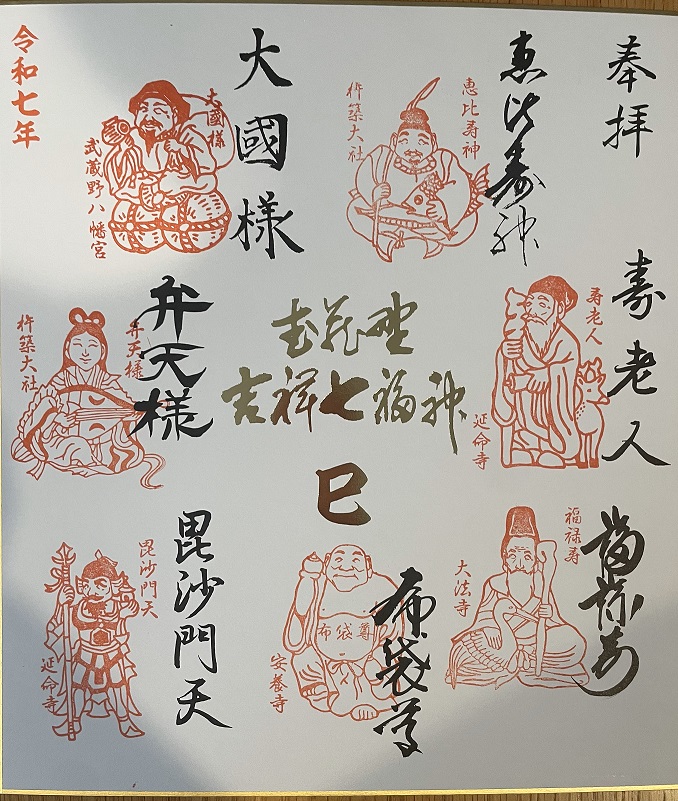 奉拝
恵比寿神
恵比寿神
杵築大社
大國様
大國様
武蔵野八幡宮
令和七年
寿老人
寿老人
延命寺
武蔵野
吉祥七福神
巳
弁天様
弁天様
杵築大社
福禄寿
福禄寿
大法寺
布袋尊
布袋尊
安養寺
毘沙門天
毘沙門天
延命寺